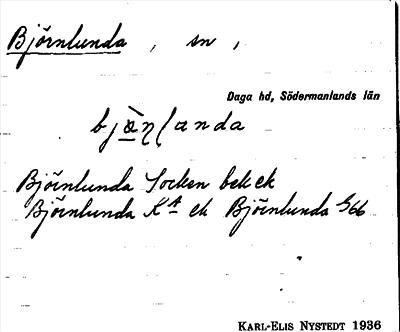 Björnlunda, sn,
Daga hd, Södermanlands län
Björnlunda Socken bek ek
Björnlunda Kᴬ ek Björnlunda
KARL-ELIS NYSTEDT 1936